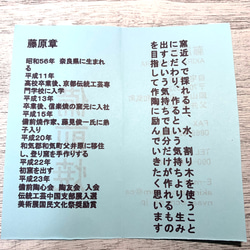 藤原章
昭和56年　奈良県に生まれる
平成11年
高校卒業後、京都伝統工芸専門学校に入学
平成13年
卒業後、信楽焼の窯元に入社
平成15年
備前焼作家、藤見俊一氏に弟子入り
平成20年
和気郡和気町父井原に移住し、登り窯を手作りする
平成22年
初窯を出す
平成23年
備前陶心会　陶友会　入会
伝統工芸中国支部展入選
美術展国民文化祭奨励賞
窯近くで採れる土、水、割り木を使うこと
にこだわり、作るという気持ちより、生み
出すという気持ちで土からいただく作いもの
を目指して作陶に励んでいきたいと思います